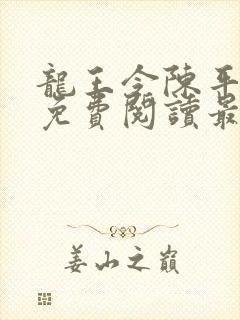 龍王令陳平
免費閱讀最
姜山之巔